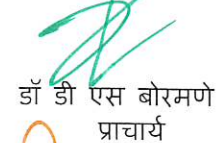 डॉ डी एस बोरमणे
प्राचार्य